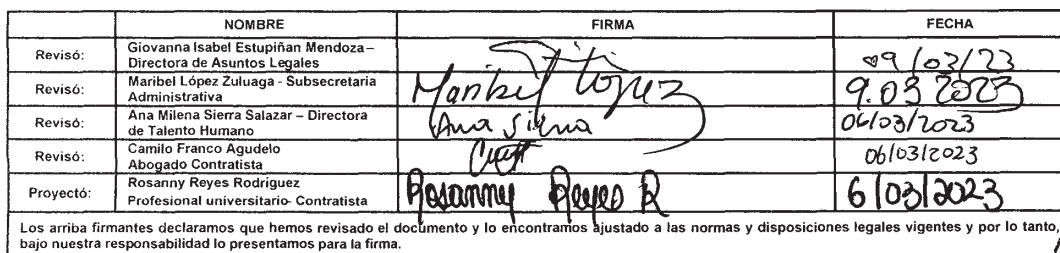 NOMBRE FIRMA FECHA
Revisó: Giovanna Isabel Estupiñan Mendoza –
Directora de Asuntos Legales 09/03/23
Revisó: Maribel López Zuluaga - Subsecretaria
Administrativa Maribel López 9.03 2023
Revisó: Ana Milena Sierra Salazar – Directora
de Talento Humano Ana Sierra 06/03/2023
Revisó: Camilo Franco Agudelo
Abogado Contratista 06/03/2023
Proyectó: Rosanny Reyes Rodríguez
Profesional universitario- Contratista Rosanny Reyes R 6/03/2023
Los arriba firmantes declaramos que hemos revisado el documento y lo encontramos ajustado a las normas y disposiciones legales vigentes y por lo tanto,
bajo nuestra responsabilidad lo presentamos para la firma.